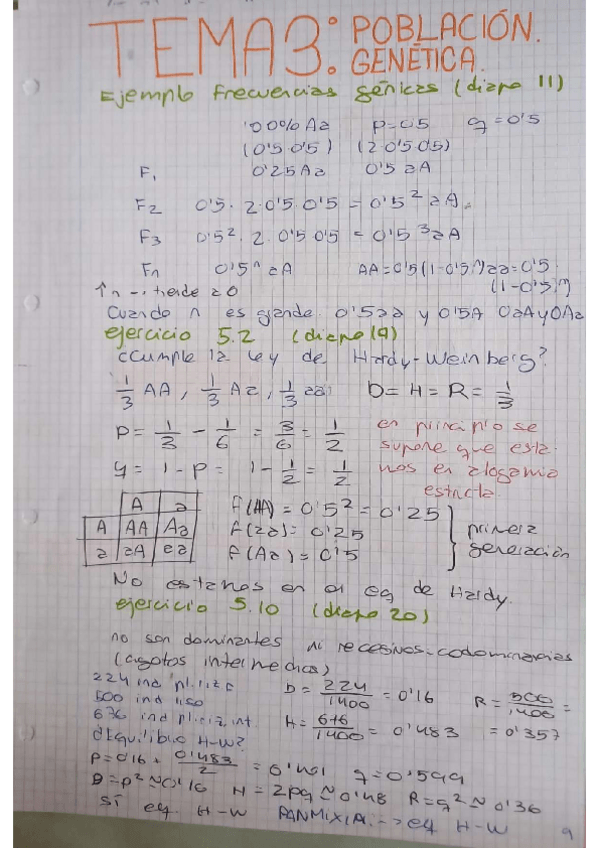 TEMA3: POBLACIÓN.
GENÉTICA.
Ejemplo frecuencias génicas (diapo 11)
100% Aa p=0'5 q=0'5
(0'5 0'5) (2 0'5 0'5)
F1 0'25Aa 0'5 aA
F2 0'5· 2·0'5·0'5 = 0'5² aA.
F3 0'5²· 2· 0'5 0'5 = 0'5³ aA
Fn 0'5ⁿ aA AA=0'5(1-0'5ⁿ) aa=0'5
(1-0'5ⁿ)
↑n → tiende a 0
Cuando n es grande 0'5aa y 0'5A 0aA y 0Aa
ejercicio 5.2 (diapo 19)
¿Cumple la ley de Hardy-Weinberg?
1/3 AA, 1/3 Aa, 1/3 aa D=H=R=1/3
P= 1/3 - 1/6 = 3/6 = 1/2
en principio se
supone que esta
q = 1-p = 1- 1/2 = 1/2
mos en alogamia
estricta
A a
A AA Aa
a aA aa
f(AA)= 0'5²= 0'25
f(aa)= 0'25
f(Aa)= 0'5
primera
generación
No estamos en el eq de Hardy.
ejercicio 5.10 (diapo 20)
no son dominantes ni recesivos-codominancias
(cigotos intermedios)
224 ind
500 ind liso
676 ind int
D= 224/1400 = 0'16
R= 500/1400 =
= 0'357
H= 676/1400 = 0'483
¿Equilibrio H-W?
P=0'16 + 0'483/2 = 0'401 q=0'599
D=p²≈0'16 H=2pq≈0'48 R=q²≈0'36
SÍ eq H-W PANMIXIA.-> eq H-W
9